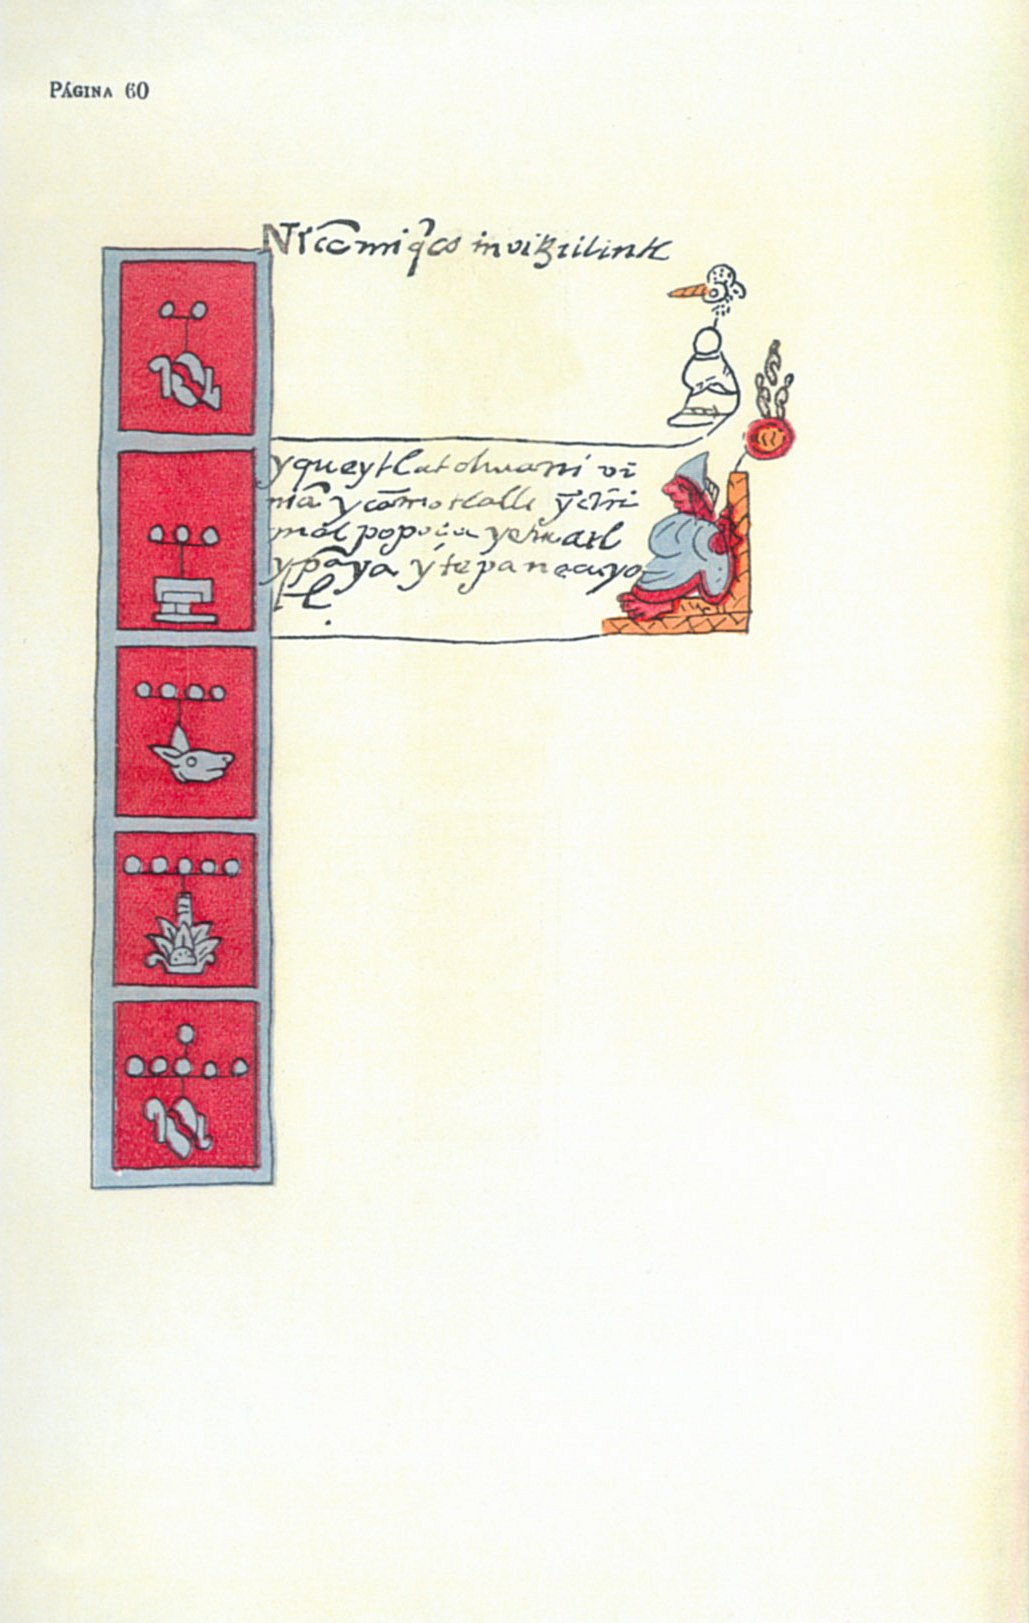 PÁGINA 60
Nicā miq̄co in vitzilintl
yqueytlatohuani vi
nia ycōmotlalli ȳchi
mal popoca yehuatl
ypāya ytepanecayo
tl.